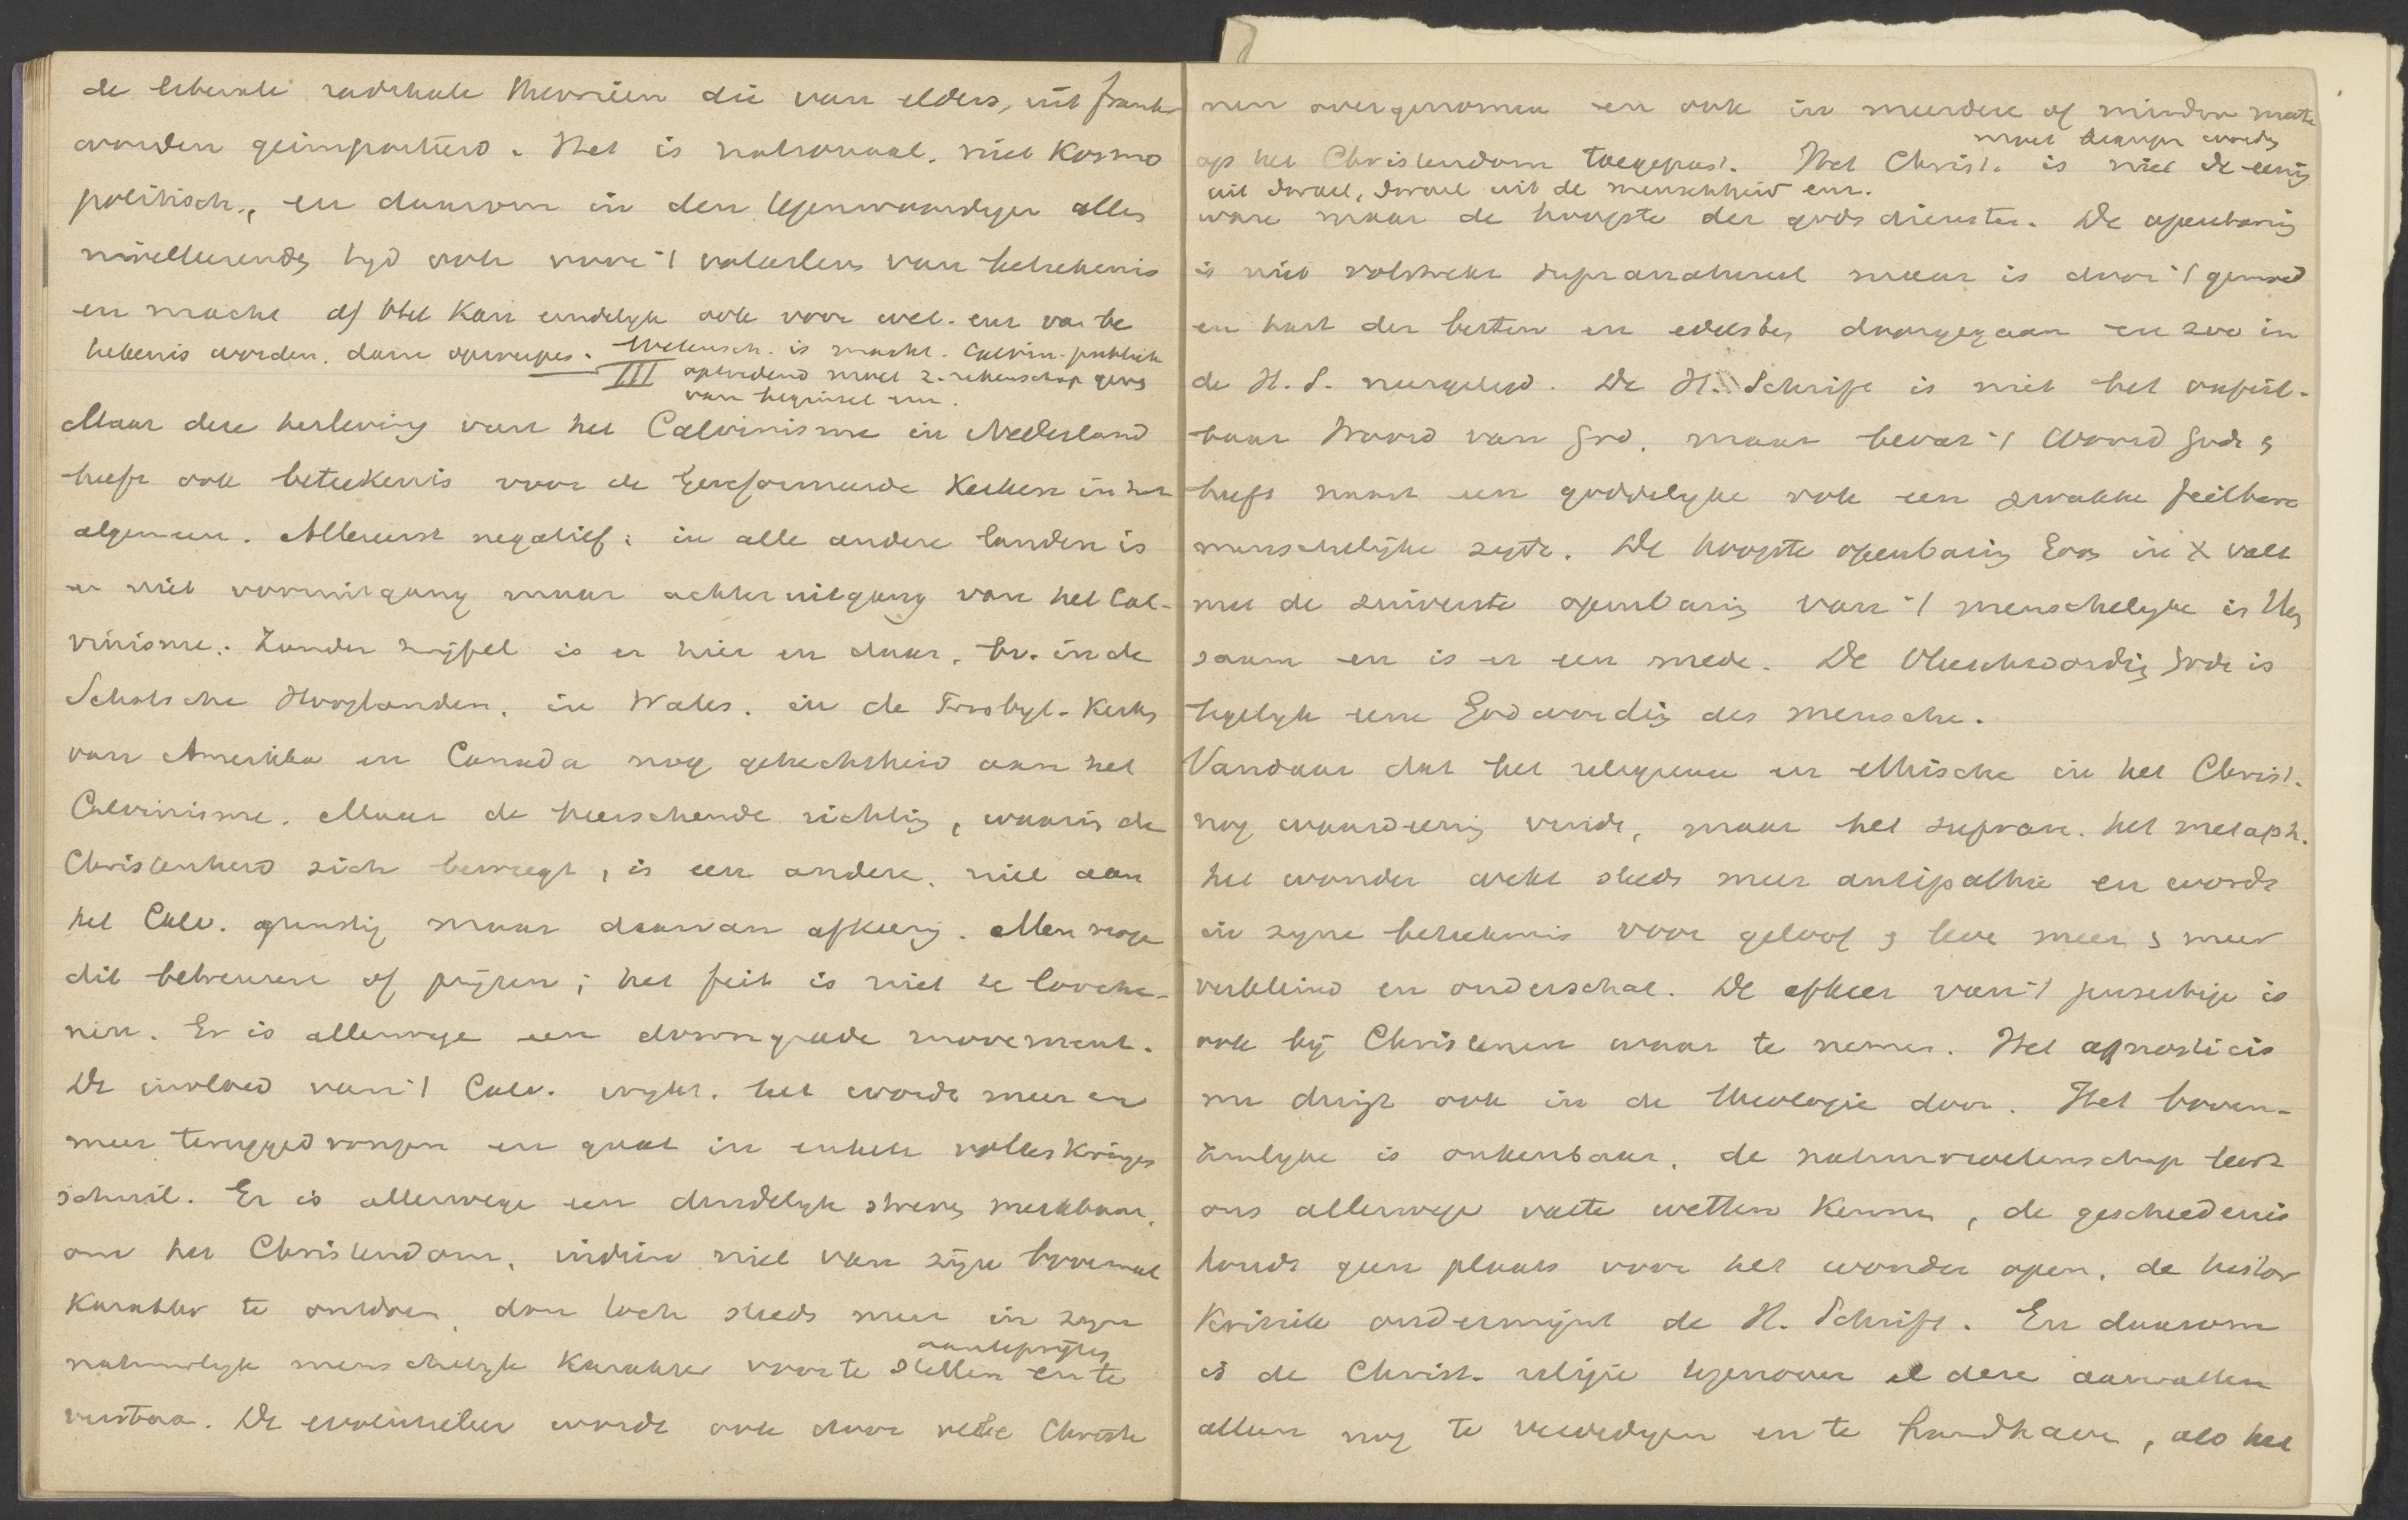 de liberale radikale theorieën die van elders, uit Frank
worden geimporteerd. Het is nationaal, niet Kosmo
politisch, en daarom in den tegenwoordigen alles
nivelleerenden tyd ook voor 't vaderland van beteekenis
en macht of het kan eindelyk ook voor wet. enz van be
teekenis worden. daar opwerpen. Wetensch. is macht. Calvin. publiek
III optredend moet z. rekenschap geven
van beginsel enz.
Maar deze herleving van het Calvinisme in Nederland
heeft ook beteekenis voor de Gereformeerde Kerken in het
algemeen. Allereerst negatief: in alle andere landen is
er niet vooruitgang maar achteruitgang van het Cal-
vinisme. Zonder twijfel is er hier en daar, bv. in de
Schotsche Hooglanden, in Wales, in de Presbyt. Kerken
van Amerika en Canada nog gehechtheid aan het
Calvinisme. Maar de heerschende richting, waarin de
Christenheid zich beweegt, is een andere, niet aan
het Calv. gunstig maar daarvan afkeerig. Men moge
dit betreuren of prijzen; het feit is niet te looche-
nen. Er is allerwege een downgrade movement.
De invloed van 't Calv. wykt, het wordt meer en
meer teruggedrongen en gaat in enkele volkskringen
schuil. Er is allerwege een duidelyk streven merkbaar,
om het Christendom, indien niet van zijn bovennat
karakter te ontdoen, dan toch steeds meer in zyn
aanteprijzen
natuurlyk menschelyk karakter voor te stellen en te
verstaan. De evolutieleer wordt ook door vele Christe
nen overgenomen en ook in meerdere of mindere mate
moet begrepen worden
op het Christendom toegepast. Het Christ. is niet de eenig
uit Israel, Israel uit de menschheid enz.
ware maar de hoogste der godsdiensten. De openbaring
is niet volstrekt supranatureel maar is door 't gemoed
en hart der besten en edelsten doorgegaan en zoo in
de H. S. neergelegd. De H. Schrift is niet het onfeil-
baar Woord van God, maar bevat 't Woord Gods &
heeft naast een goddelyke ook een zwakke feilbare
menschelijke zyde. De hoogste openbaring Gods in X valt
met de zuiverste openbaring van 't menschelyke in Hem
saam en is er een mede. De Menschwording Gods is
tegelyk eene Godwording des menschen.
Vandaar dat het religieuse en ethische in het Christ.
nog waardeering vindt, maar het supran. het metaph.
het wonder wekt steeds meer antipathie en wordt
in zyne beteekenis voor geloof & leven meer & meer
verkleind en onderschat. De afkeer van 't positieve is
ook bij Christenen waar te nemen. Het agnosticis
me dringt ook in de theologie door. Het boven-
zinlyke is onkenbaar, de natuurwetenschap leert
ons allerwege vaste wetten kennen, de geschiedenis
houdt geen plaats voor het wonder open, de histor
kritiek ondermijnt de H. Schrift. En daarom
is de Christ. religie tegenover al deze aanvallen
alleen nog te verdedigen en te handhaven, als het